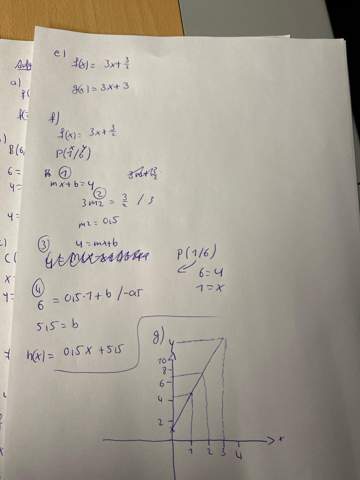 e)
f(x) = 3x + 3/2
g(x) = 3x + 3
f)
f(x) = 3x + 3/2
P(1/6)
x y
①
mx + b = y
②
3m2 = 3/2 / 3
m2 = 0,5
③ y = mx + b
P(1/6)
6 = y
1 = x
④
6 = 0,5 · 1 + b / -0,5
5,5 = b
h(x) = 0,5x + 5,5
g)
y
10
8
6
4
2
1 2 3 4
x
a)
B(6,
6 =
y =
y =
C(
x =
y =